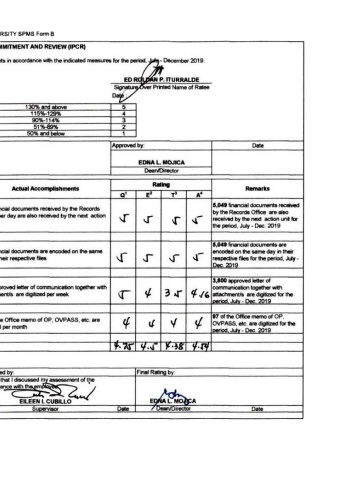 RSITY SPMS Form B
MMITMENT AND REVIEW (IPCR)
ets in accordance with the indicated measures for the period, July - December 2019.
ED ROLDAN P. ITURRALDE
Signature Over Printed Name of Ratee
Date
130% and above 5
115%-129% 4
90%-114% 3
51%-89% 2
50% and below 1
Approved by: Date
EDNA L. MOJICA
Dean/Director
Actual Accomplishments Rating Remarks
Q¹ E² T³ A⁴
ncial documents received by the Records
er day are also received by the next action
5 5 5 5
5,049 financial documents received
by the Records Office are also
received by the next action unit for
the period, July - Dec. 2019
ncial documents are encoded on the same
heir respective files
5 5 5 5
5,049 financial documents are
encoded on the same day in their
respective files for the period, July -
Dec. 2019
proved letter of communication together with
ment/s are digitized per week
5 4 3.5 4.16
3,800 approved letter of
communication together with
attachment/s are digitized for the
period, July - Dec. 2019
e Office memo of OP, OVPASS, etc. are
d per month
4 4 4 4
97 of the Office memo of OP,
OVPASS, etc. are digitized for the
period, July - Dec. 2019
4.75 4.5 4.38 4.54
ed by: Final Rating by:
that I discussed my assessment of the
ance with the employee
EILEEN I. CUBILLO
EDNA L. MOJICA
Supervisor Date Dean/Director Date